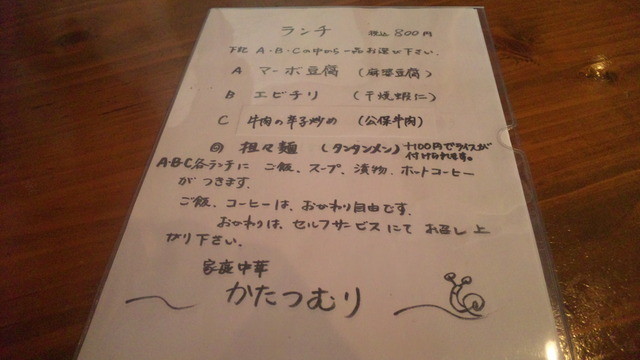 ランチ 税込 800円
下記 A・B・Cの中から一品お選び下さい。
A マーボ豆腐 (麻婆豆腐)
B エビチリ (干焼蝦仁)
C 牛肉の辛子炒め (公保牛肉)
坦々麺 (タンタンメン) +100円でライスが
付けられます。
A・B・C各ランチに ご飯、スープ、漬物、ホットコーヒー
がつきます。
ご飯、コーヒーは、おかわり自由です。
おかわりは、セルフサービスにて お召し上
がり下さい。
家庭中華
かたつむり